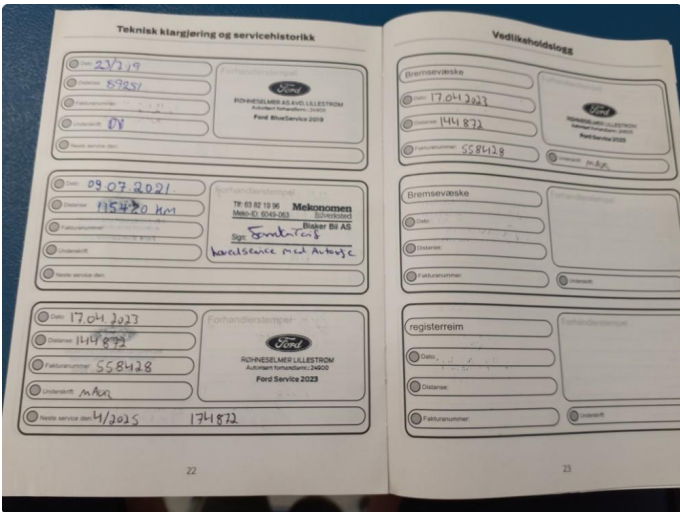 Teknisk klargjøring og servicehistorikk
Dato: 23/2-19
Distanse: 89251
Fakturanummer:
Underskrift:
Neste service den:
Forhandlerstempel
Ford
RØHNESELMER AS AVD. LILLESTRØM
Autorisert forhandlernr.: 24900
Ford BlueService 2019
Dato: 09.07.2021.
Distanse: 115720 KM
Fakturanummer:
Underskrift:
Neste service den:
Forhandlerstempel
Tlf: 63 82 19 96 Mekonomen
Meko-ID: 6049-063 Bilverksted
Blaker Bil AS
Sign
hovedservice med
Dato: 17.04.2023
Distanse: 144872
Fakturanummer: 558428
Underskrift:
Neste service den: 4/2025 174872
Forhandlerstempel
Ford
RØHNESELMER LILLESTRØM
Autorisert forhandlernr.: 24900
Ford Service 2023
22
Vedlikeholdslogg
Bremsevæske
Dato: 17.04.2023
Distanse: 144872
Fakturanummer: 558428
Forhandlerstempel
Ford
RØHNESELMER LILLESTRØM
Autorisert forhandlernr.: 24900
Ford Service 2023
Underskrift:
Bremsevæske
Dato:
Distanse:
Fakturanummer:
Forhandlerstempel
Underskrift:
registerreim
Dato:
Distanse:
Fakturanummer:
Forhandlerstempel
Underskrift:
23